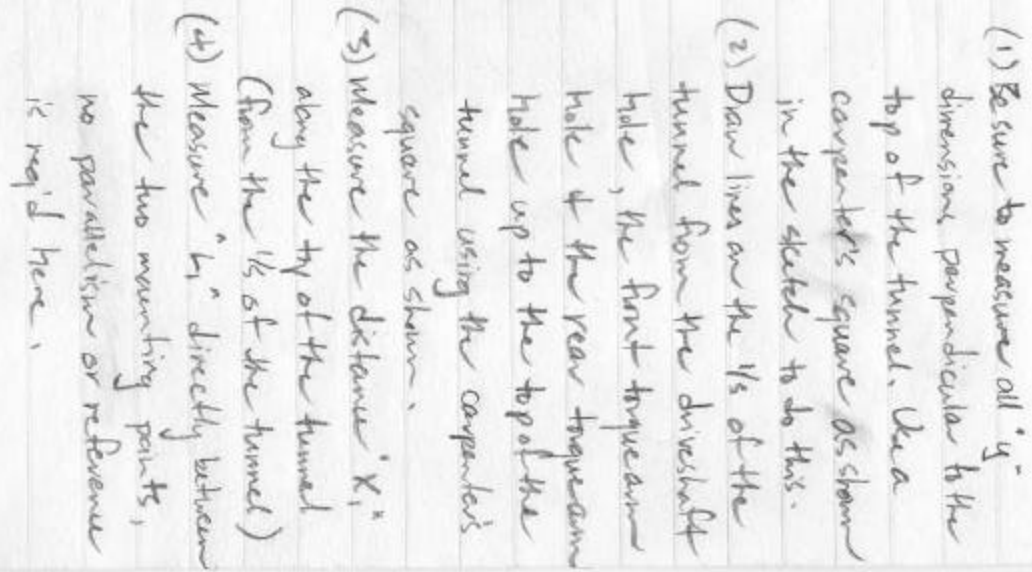 (1) Be sure to measure all "y"
dimensions perpendicular to the
top of the tunnel. Use a
carpenter's square as shown
in the sketch to do this.
(2) Draw lines on the 1/s of the
tunnel from the driveshaft
hole, the front torquearm
hole & the rear torquearm
hole up to the top of the
tunnel using the carpenter's
square as shown.
(3) Measure the distance "X,"
along the top of the tunnel
(from the 1/s of the tunnel)
(4) Measure "h," directly between
the two mounting points,
no parallelism or reference
is req'd here.